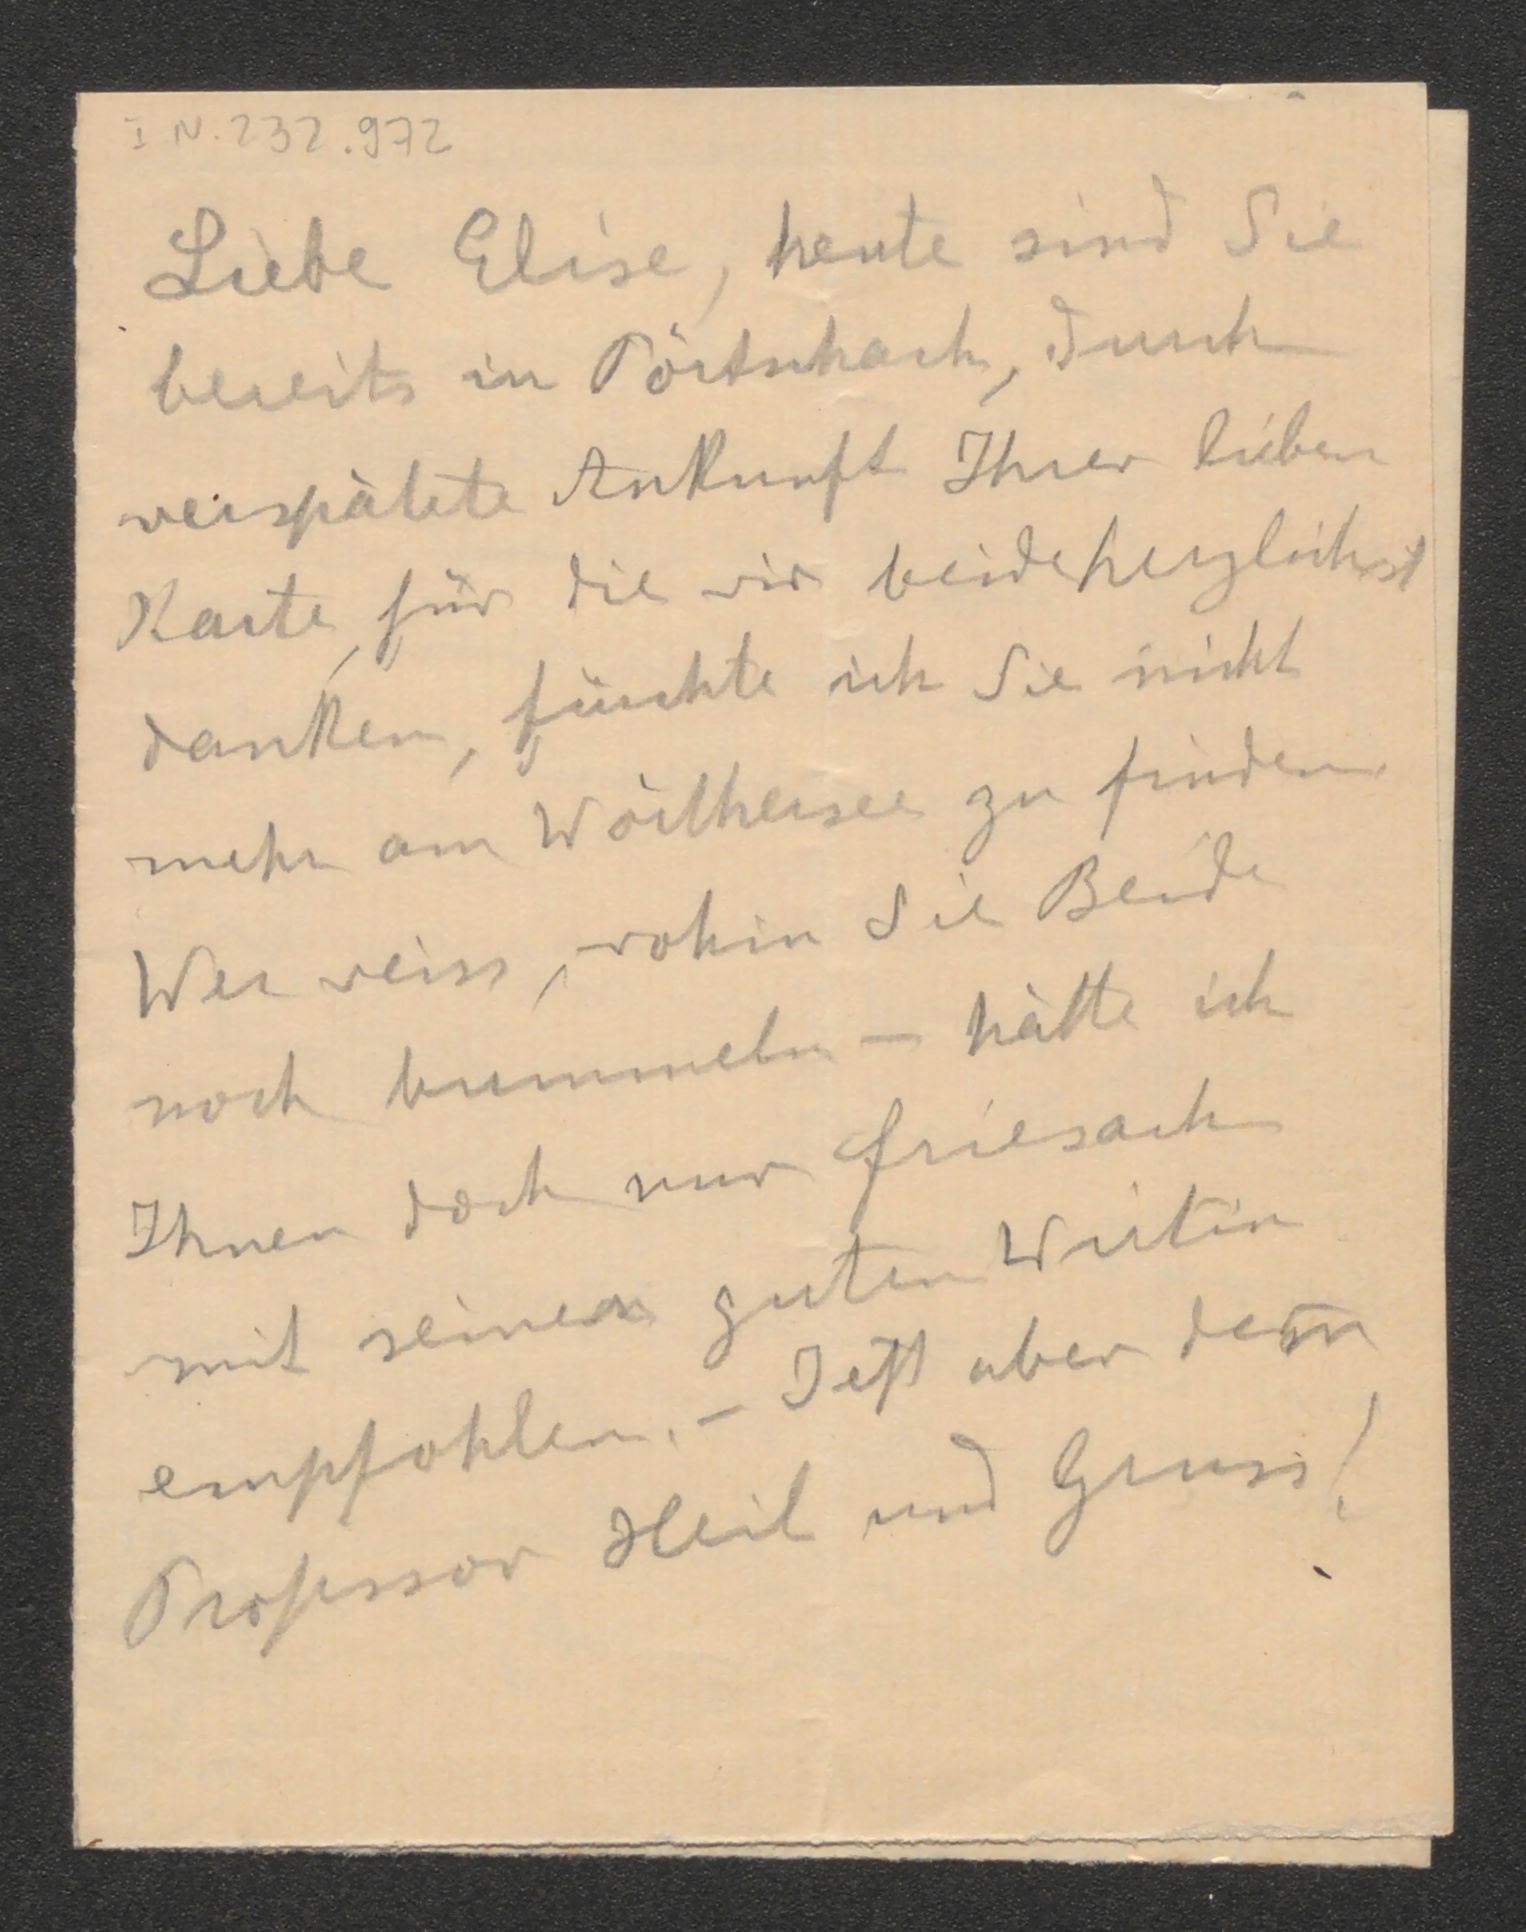 I N. 232.972
Liebe Elise, heute sind Sie
bereits in Pörtschach, durch
verspätete Ankunft Ihrer lieben
Karte, für die wir beide herzlichst
danken, fürchte ich Sie nicht
mehr am Wörthersee zu finden
Wer weiss, wohin Sie Beide
noch bummeln – hätte ich
Ihnen doch nur Friesach
mit seiner guten Wirtin
empfohlen. – Jetzt aber dem
Professor Heil und Gruss!